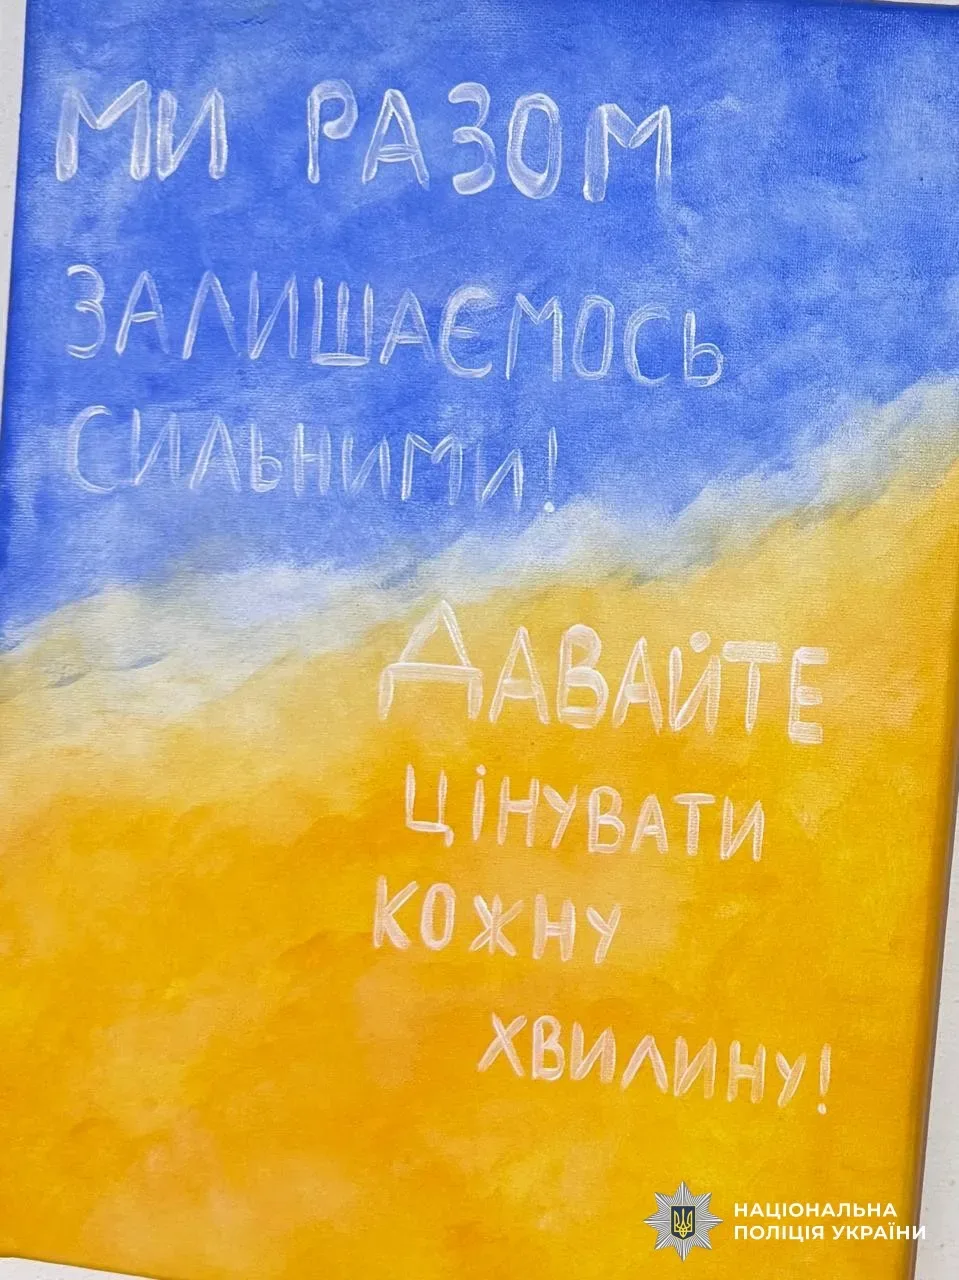 МИ РАЗОМ
ЗАЛИШАЄМОСЬ
СИЛЬНИМИ!
ДАВАЙТЕ
ЦІНУВАТИ
КОЖНУ
ХВИЛИНУ!
НАЦІОНАЛЬНА
ПОЛІЦІЯ УКРАЇНИ